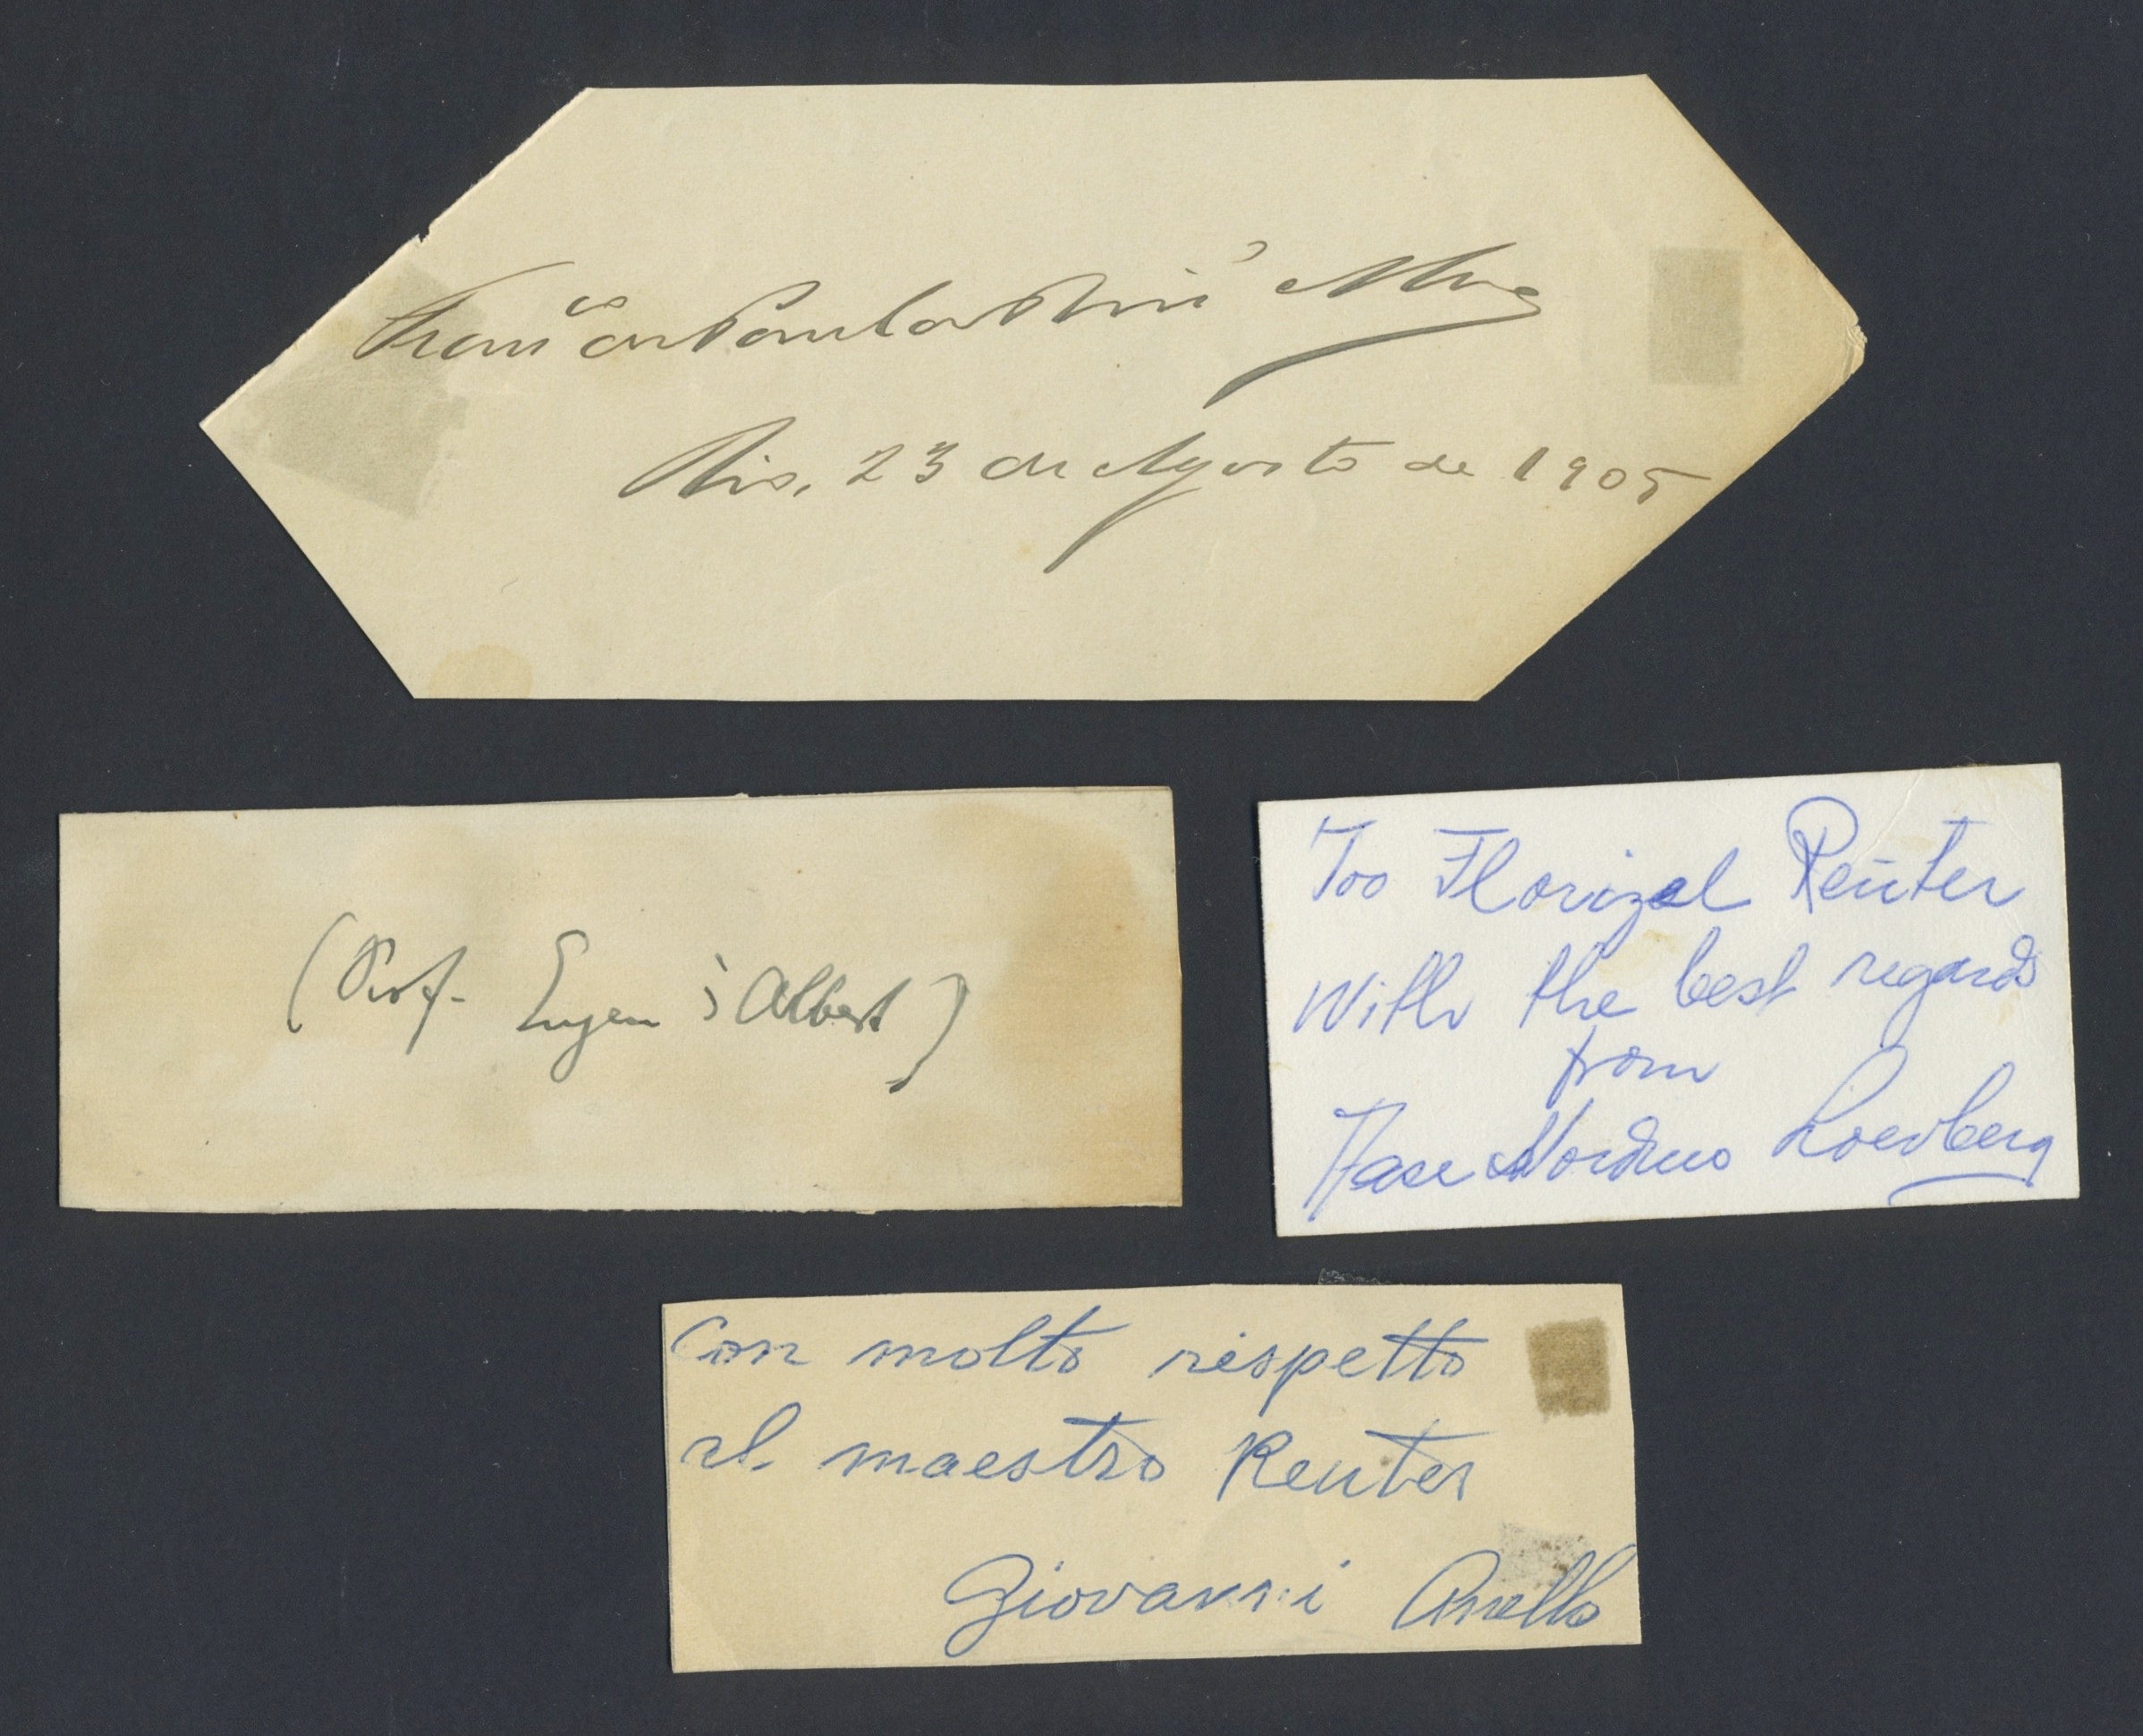 Fran<sup>co</sup> de Paula Roiz Alves
Rio, 23 de Agosto de 1905
(Prof. Eugen d'Albert)
Too Florizel Reuter
With the best regards
from
Aase Nordmo Loevberg
Con molto rispetto
al maestro Reuter
Giovanni Anello